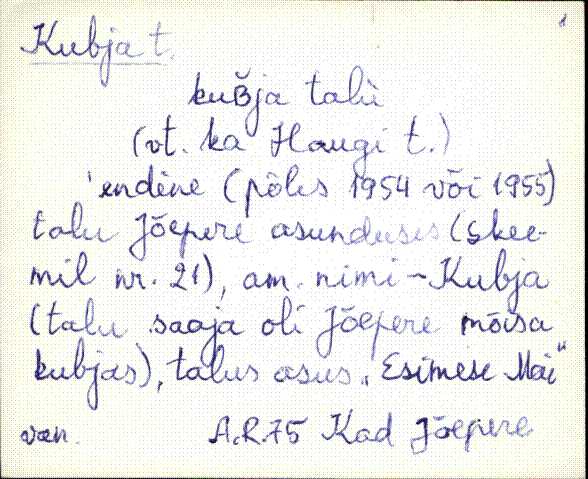 Kubja t.
kuʙ̆ja talù
(vt. ka Haugi t.)
'endène (põles 1954 või 1955)
talu Jõepere asunduses (skee-
mil nr. 21), am. nimi - Kubja
(talu saaja oli Jõepere mõisa
kubjas), talus asus „Esimese Mai"
van. A.R.75 Kad Jõepere